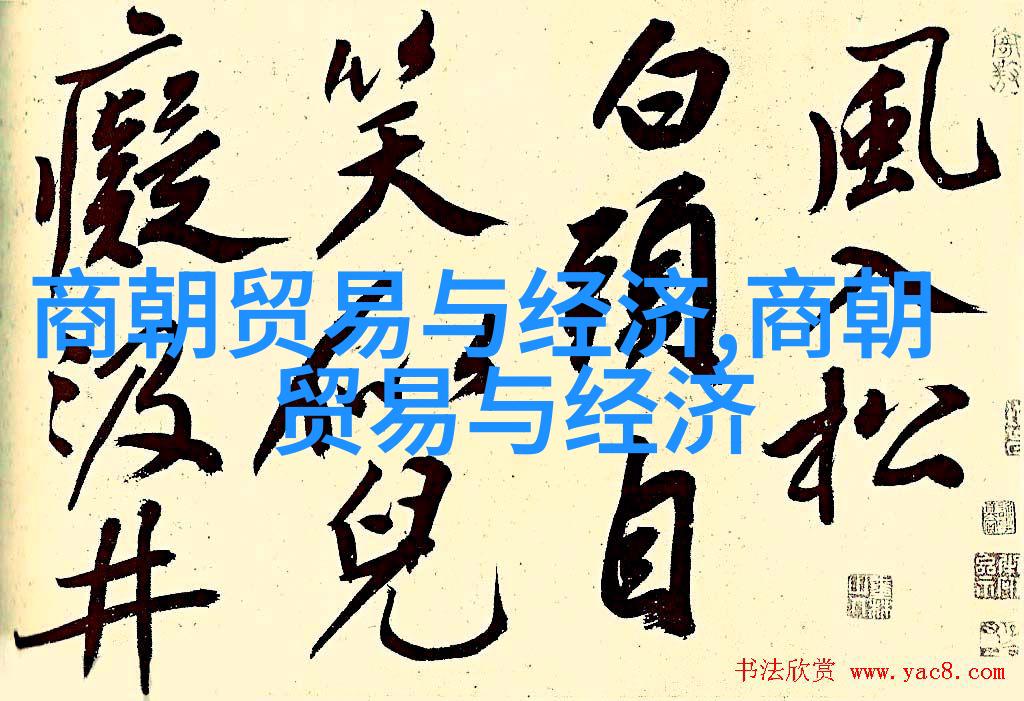 風入松
白頭自
笑兒
癡汲井
商朝贸易与经济,商朝
贸易与经济
书法欣赏 www.yac8.com